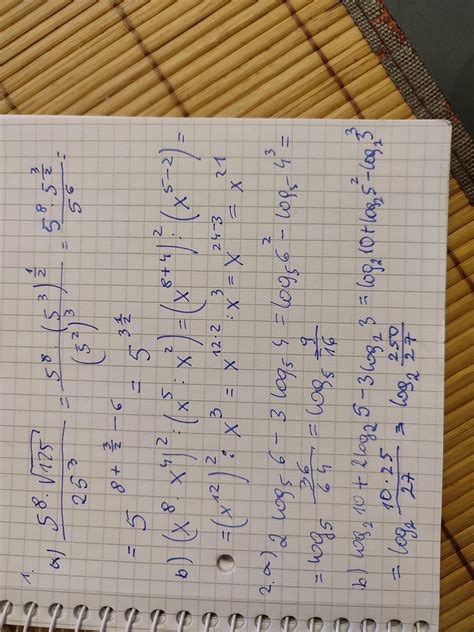 1.
a) \frac{5^8 \cdot \sqrt{125}}{25^3} = \frac{5^8 \cdot (5^3)^{\frac{1}{2}}}{(5^2)^3} = \frac{5^8 \cdot 5^{\frac{3}{2}}}{5^6} =
= 5^{8 + \frac{3}{2} - 6} = 5^{3\frac{1}{2}}
b) (x^8 \cdot x^4)^2 : (x^5 : x^2) = (x^{8+4})^2 : (x^{5-2}) =
= (x^{12})^2 : x^3 = x^{12 \cdot 2} : x^3 = x^{24-3} = x^{21}
2. a) 2 log_5 6 - 3 log_5 4 = log_5 6^2 - log_5 4^3 =
= log_5 \frac{36}{64} = log_5 \frac{9}{16}
b) log_2 10 + 2 log_2 5 - 3 log_2 3 = log_2 10 + log_2 5^2 - log_2 3^3
= log_2 \frac{10 \cdot 25}{27} = log_2 \frac{250}{27}